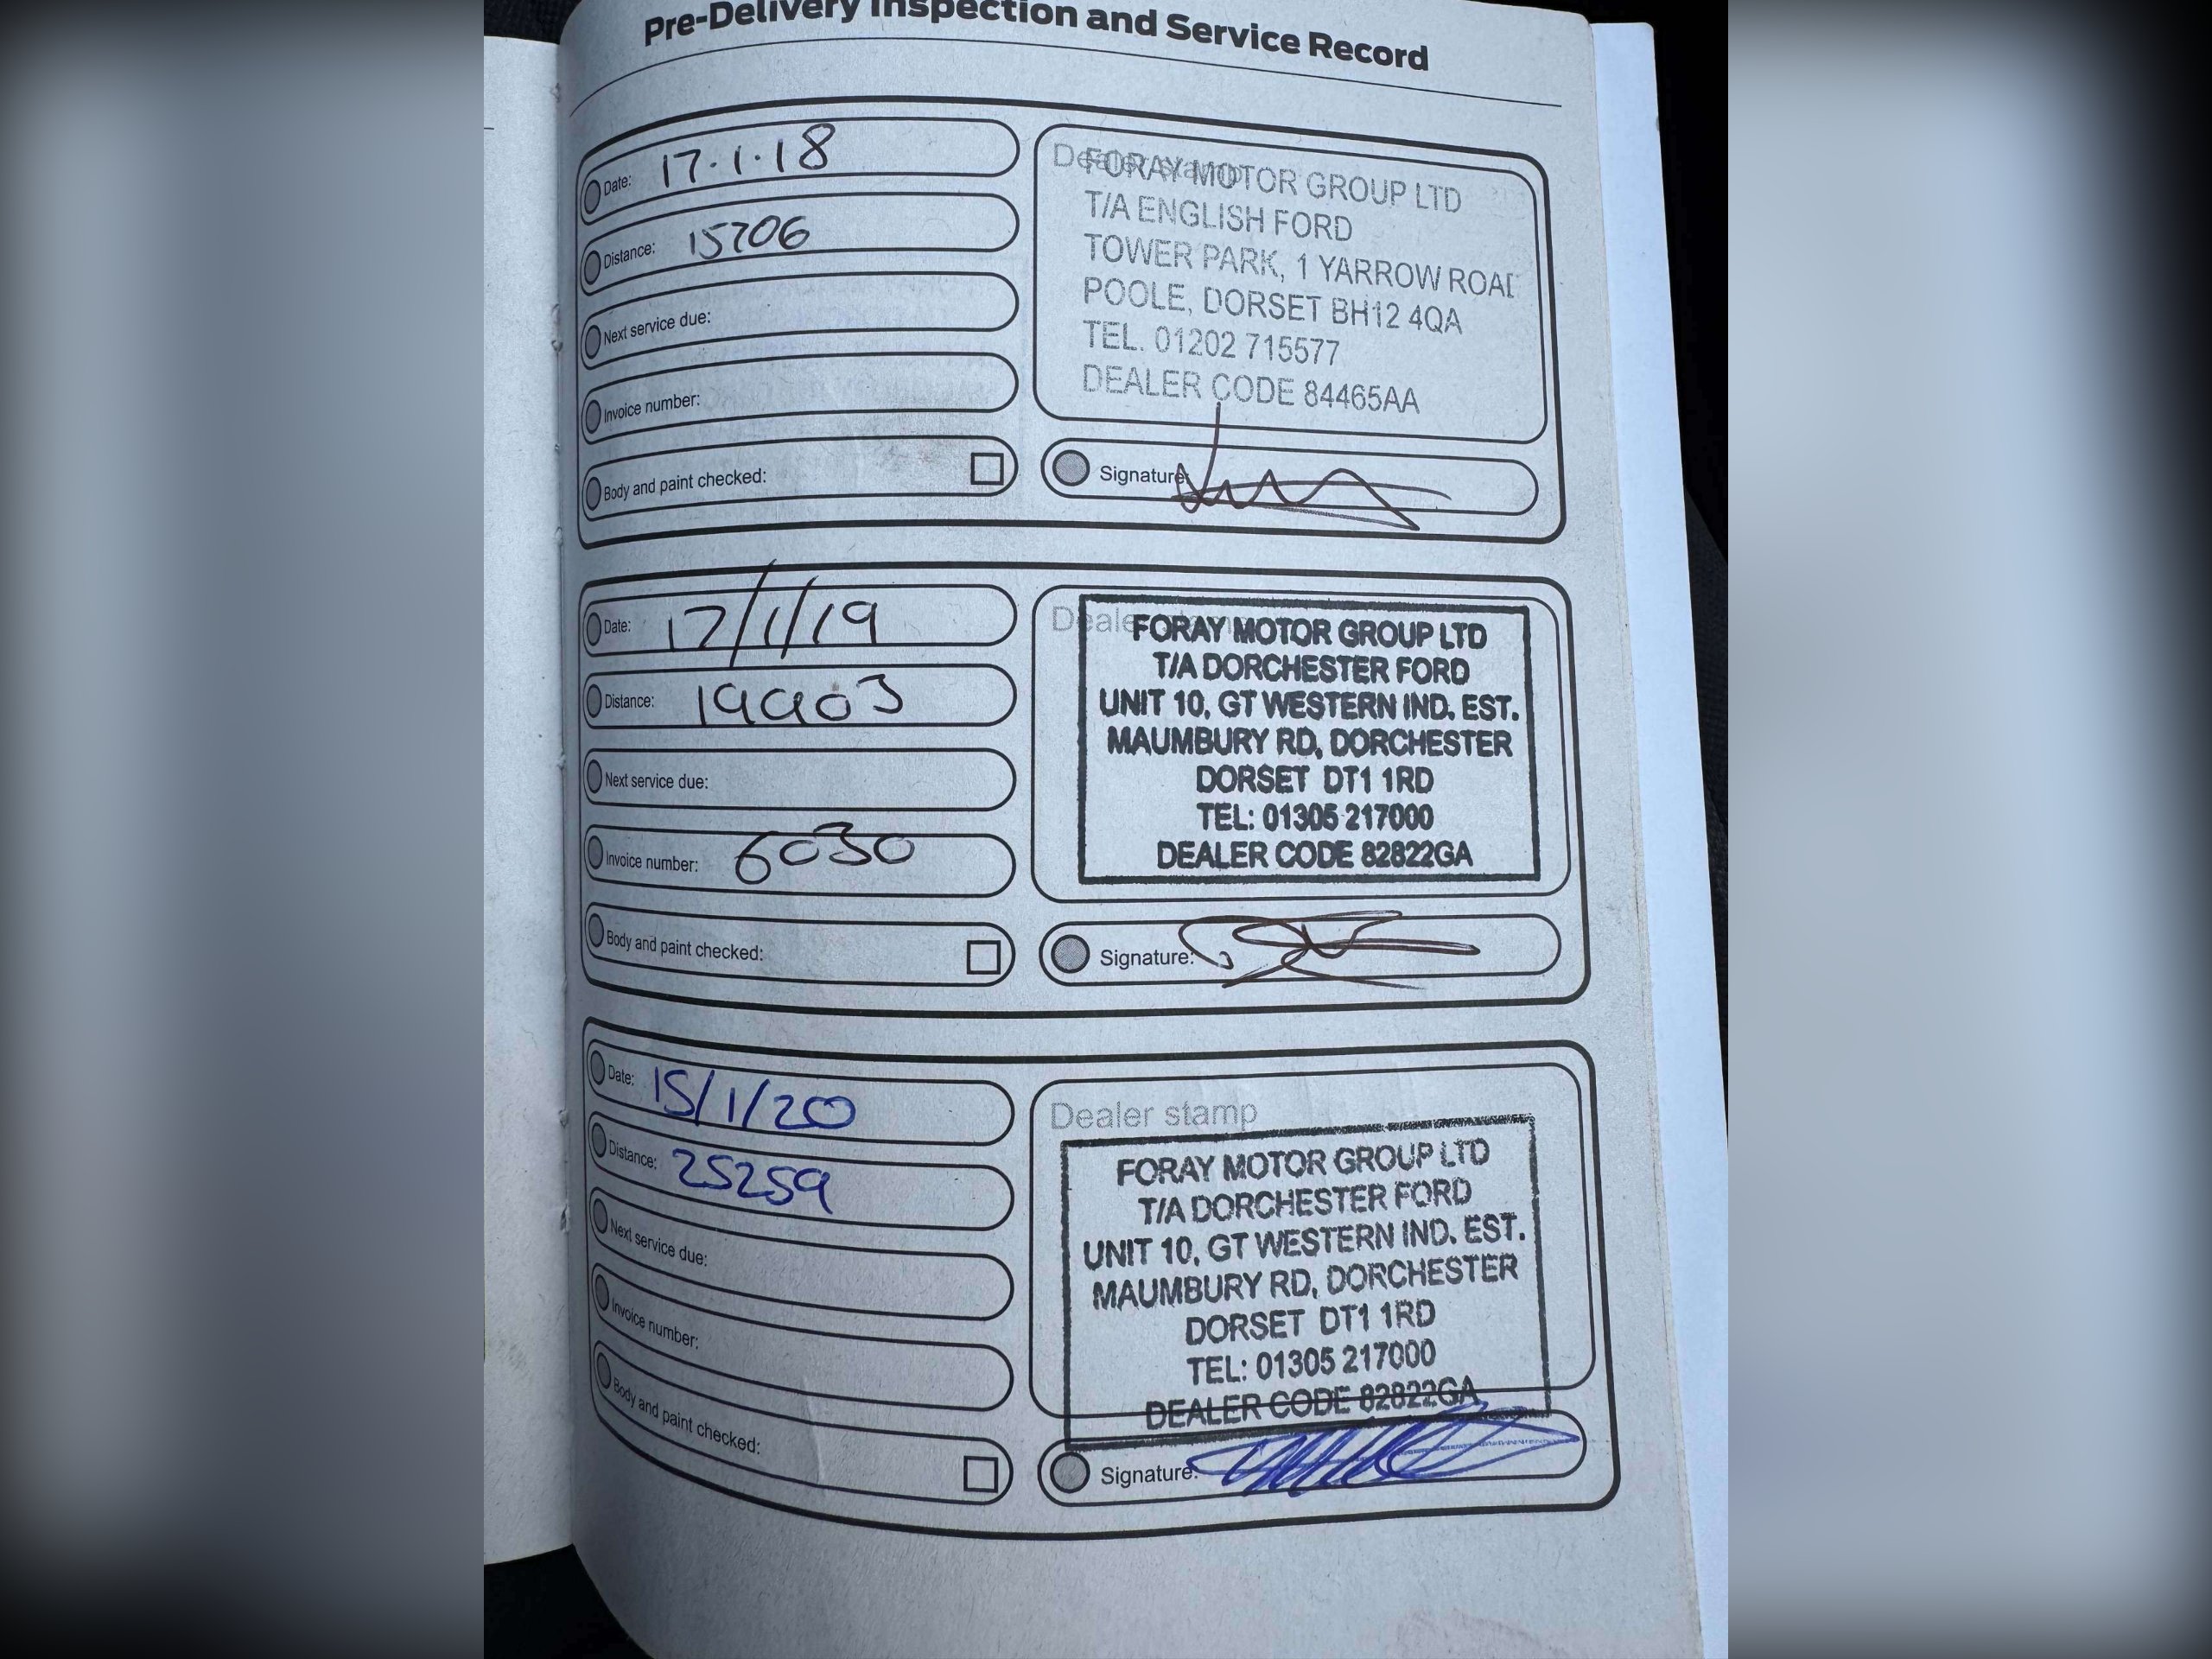 Pre-Delivery Inspection and Service Record
Date: 17.1.18
Distance: 15706
Next service due:
Invoice number:
Body and paint checked:
Dealer stamp
FORAY MOTOR GROUP LTD
T/A ENGLISH FORD
TOWER PARK, 1 YARROW ROAD
POOLE, DORSET BH12 4QA
TEL. 01202 715577
DEALER CODE 84465AA
Signature:
Date: 17/1/19
Distance: 19903
Next service due:
Invoice number: 6030
Body and paint checked:
Dealer
FORAY MOTOR GROUP LTD
T/A DORCHESTER FORD
UNIT 10, GT WESTERN IND. EST.
MAUMBURY RD, DORCHESTER
DORSET DT1 1RD
TEL: 01305 217000
DEALER CODE 82822GA
Signature:
Date: 15/1/20
Distance: 25259
Next service due:
Invoice number:
Body and paint checked:
Dealer stamp
FORAY MOTOR GROUP LTD
T/A DORCHESTER FORD
UNIT 10, GT WESTERN IND. EST.
MAUMBURY RD, DORCHESTER
DORSET DT1 1RD
TEL: 01305 217000
DEALER CODE 82822GA
Signature: